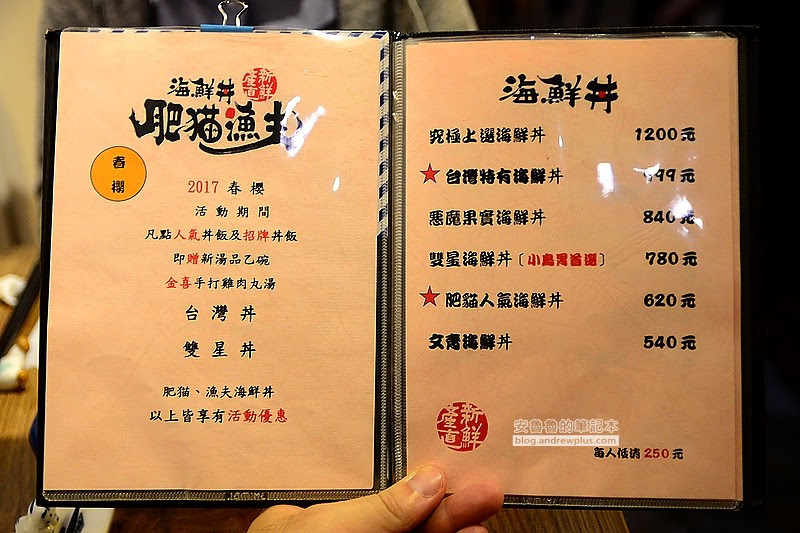 海鮮丼
新鮮
產直
肥猫漁夫
春櫻
2017 春櫻
活動期間
凡點人氣丼飯及招牌丼飯
即贈新湯品乙碗
金喜手打雞肉丸湯
台灣丼
雙星丼
肥猫、漁夫海鮮丼
以上皆享有活動優惠
海鮮丼
究極上選海鮮丼 1200元
★台灣特有海鮮丼 999元
惡魔果實海鮮丼 840元
雙星海鮮丼〔小鳥胃首選〕 780元
★肥貓人氣海鮮丼 620元
文青海鮮丼 540元
新鮮
產直
每人低消250元
安魯魯的筆記本
blog.andrewplus.com